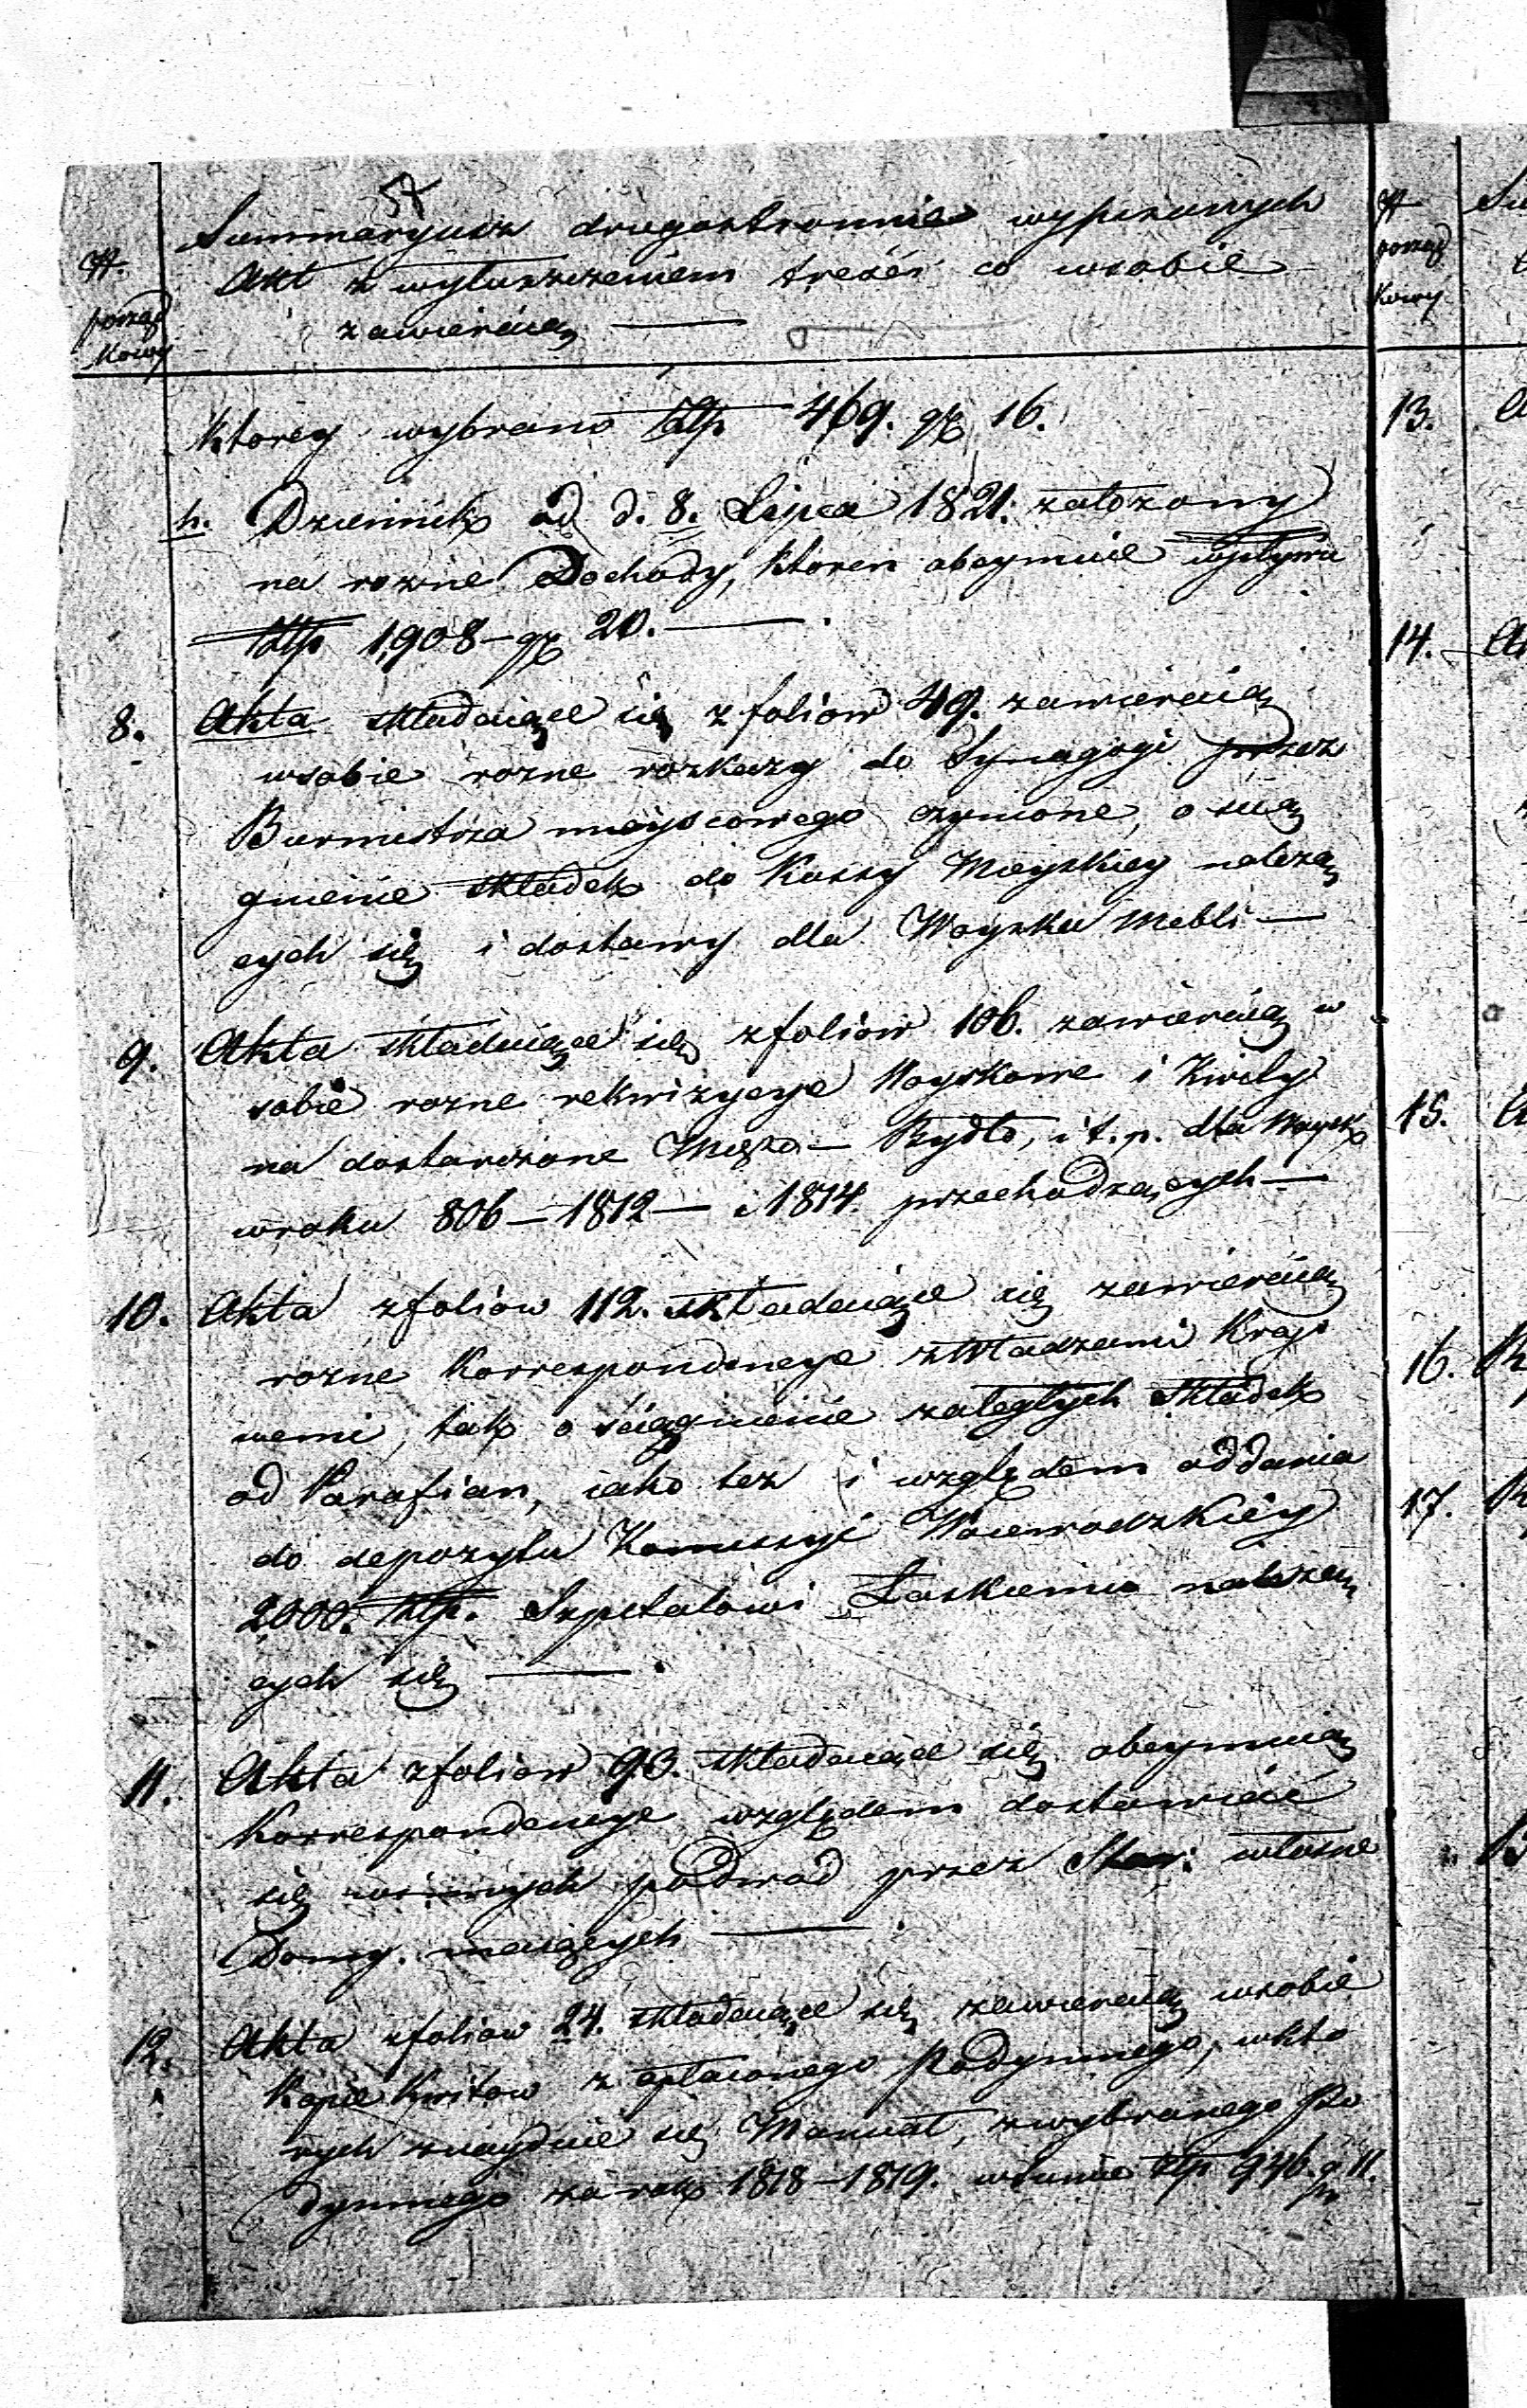 57
N porząd kowy
Summaryusz drugostronnie wypisanych
Akt z wyłuszczeniem treści co wsobie
zawieraią —
ktorey wybrano Złtp 469. gr 16.
h. Dziennik od d. 8. Lipca 1821. założony
na rozne Dochody, ktoren obeymuie wpływu
Złtp 1,908 — gr 20. —
8. Akta składaiące się z foliow 49. zawieraią
wsobie rozne rozkazy do Synagogi przez
Burmistrza mieyscowego czynione, o scią
gnienie składek do Kassy Mieyskiey należą
cych się i dostawy dla Woyska Mebli —
9. Akta składaiące się zfoliow 106. zawieraią w
sobie rozne rekwizycye Woyskowe i Kwity
na dostarczone Mięso — Bydło, i t. p. dla Woysk
wroku 806 — 1812 — i 1814. przechodzących —
10. Akta zfoliow 112. składaiące się zawieraią
rozne Korrespondencye zWładzami Kraio
wemi, tak o ściągnienie zaległych składek
od Parafian, iako też i względem oddania
do depozytu Komissyi Woiewodzkiéy
2000. Złtp. Szpitalowi Łaskiemu należą
cych się —
11. Akta zfoliow 93. składaiące się obeymuią
Korrespondencye względem dostawiać
się podwod przez Star: własne
Domy maiących —
12. Akta zfoliow 24. składaiące się zawieraią wsobie
Kopie Kwitow z opłaconego Podymnego, wkto
rych znayduie się Manuał, zwybranego Po
dymnego za rok 1818 — 1819. wsumie złtp 946. gr 11.
N porząd kowy
13.
14.
15.
16.
17.